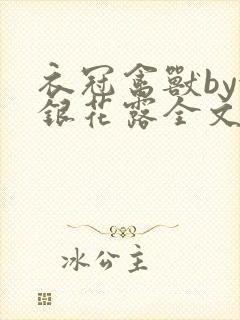 衣冠禽獸by
銀花露全文
冰公主